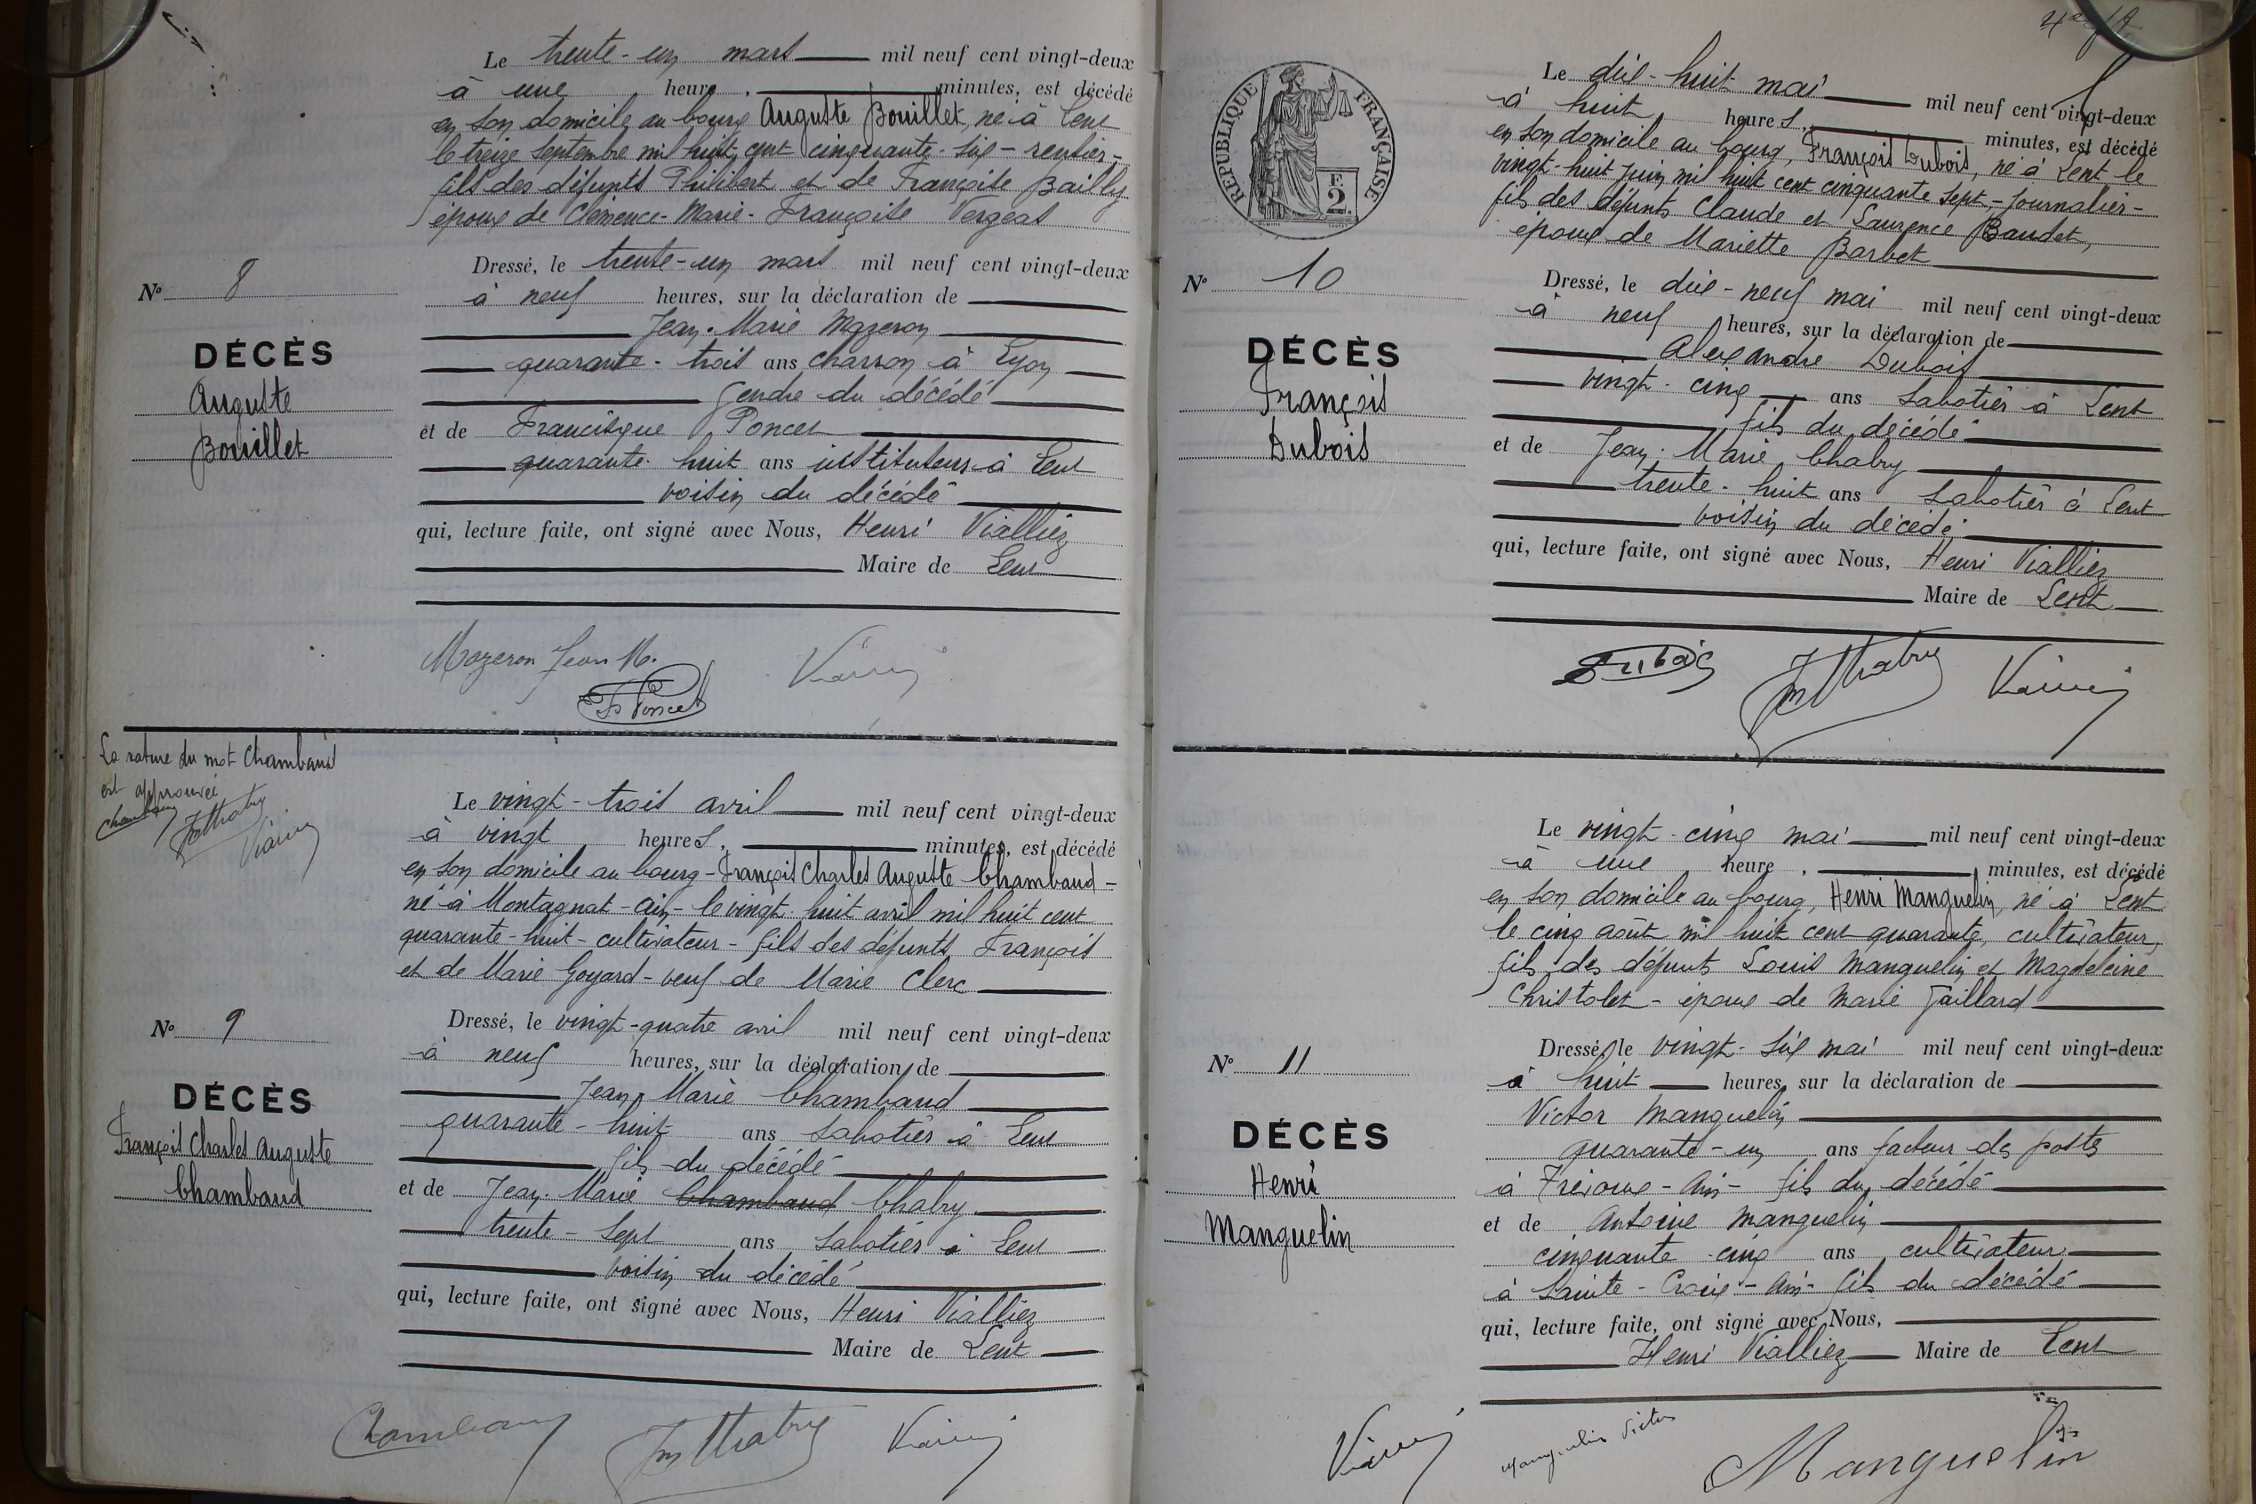 Le trente-un mars mil neuf cent vingt-deux
à une heure, minutes, est décédé
en son domicile au bourg Auguste Bouillet, né à Lent
le treize septembre mil huit cent cinquante-six - rentier -
fils des défunts Philibert et de Françoise Bailly
époux de Clémence-Marie-Françoise Vergeat
Dressé, le trente-un mars mil neuf cent vingt-deux
à neuf heures, sur la déclaration de
Jean-Marie Mazeron
quarante-trois ans charron à Lyon
gendre du décédé
et de Francisque Poncet
quarante-huit ans instituteur à Lent
voisin du décédé
qui, lecture faite, ont signé avec Nous, Henri Vialliez
Maire de Lent
N° 8
DÉCÈS
Auguste
Bouillet
Mazeron Jean M.
Fs Poncet
La rature du mot Chambaud
est approuvée
Le vingt-trois avril mil neuf cent vingt-deux
à vingt heures, minutes, est décédé
en son domicile au bourg - François Charles Auguste Chambaud -
né à Montagnat - Ain - le vingt-huit avril mil huit cent
quarante-huit - cultivateur - fils des défunts François
et de Marie Goyard - veuf de Marie Clerc
Dressé, le vingt-quatre avril mil neuf cent vingt-deux
à neuf heures, sur la déclaration de
Jean-Marie Chambaud
quarante-huit ans sabotier à Lent
fils du décédé
et de Jean-Marie Chambaud Chatry
trente-sept ans sabotier à Lent
voisin du décédé
qui, lecture faite, ont signé avec Nous, Henri Vialliez
Maire de Lent
N° 9
DÉCÈS
François Charles Auguste
Chambaud
Chambaud Jm Chatry
RÉPUBLIQUE FRANÇAISE
2
Le dix-huit mai mil neuf cent vingt-deux
à huit heures, minutes, est décédé
en son domicile au bourg, François Dubois, né à Lent le
vingt-huit juin mil huit cent cinquante sept, - journalier -
fils des défunts Claude et Laurence Baudet,
époux de Mariette Barbet
Dressé, le dix-neuf mai mil neuf cent vingt-deux
à neuf heures, sur la déclaration de
Alexandre Dubois
vingt-cinq ans sabotier à Lent
fils du décédé
et de Jean-Marie Chatry
trente-huit ans sabotier à Lent
voisin du décédé
qui, lecture faite, ont signé avec Nous, Henri Vialliez
Maire de Lent
N° 10
DÉCÈS
François
Dubois
Dubois Jm Chatry
Le vingt-cinq mai mil neuf cent vingt-deux
à une heure, minutes, est décédé
en son domicile au bourg, Henri Manguelin, né à Lent
le cinq août mil huit cent quarante, cultivateur,
fils des défunts Louis Manguelin et Magdeleine
Christolet - époux de Marie Gaillard
Dressé, le vingt-six mai mil neuf cent vingt-deux
à huit heures, sur la déclaration de
Victor Manguelin
quarante-un ans facteur des postes
à Trévoux - Ain - fils du décédé
et de Antoine Manguelin
cinquante-cinq ans cultivateur
à Sainte-Croix - Ain - fils du décédé
qui, lecture faite, ont signé avec Nous,
Henri Vialliez Maire de Lent
N° 11
DÉCÈS
Henri
Manguelin
Manguelin Victor
Manguelin